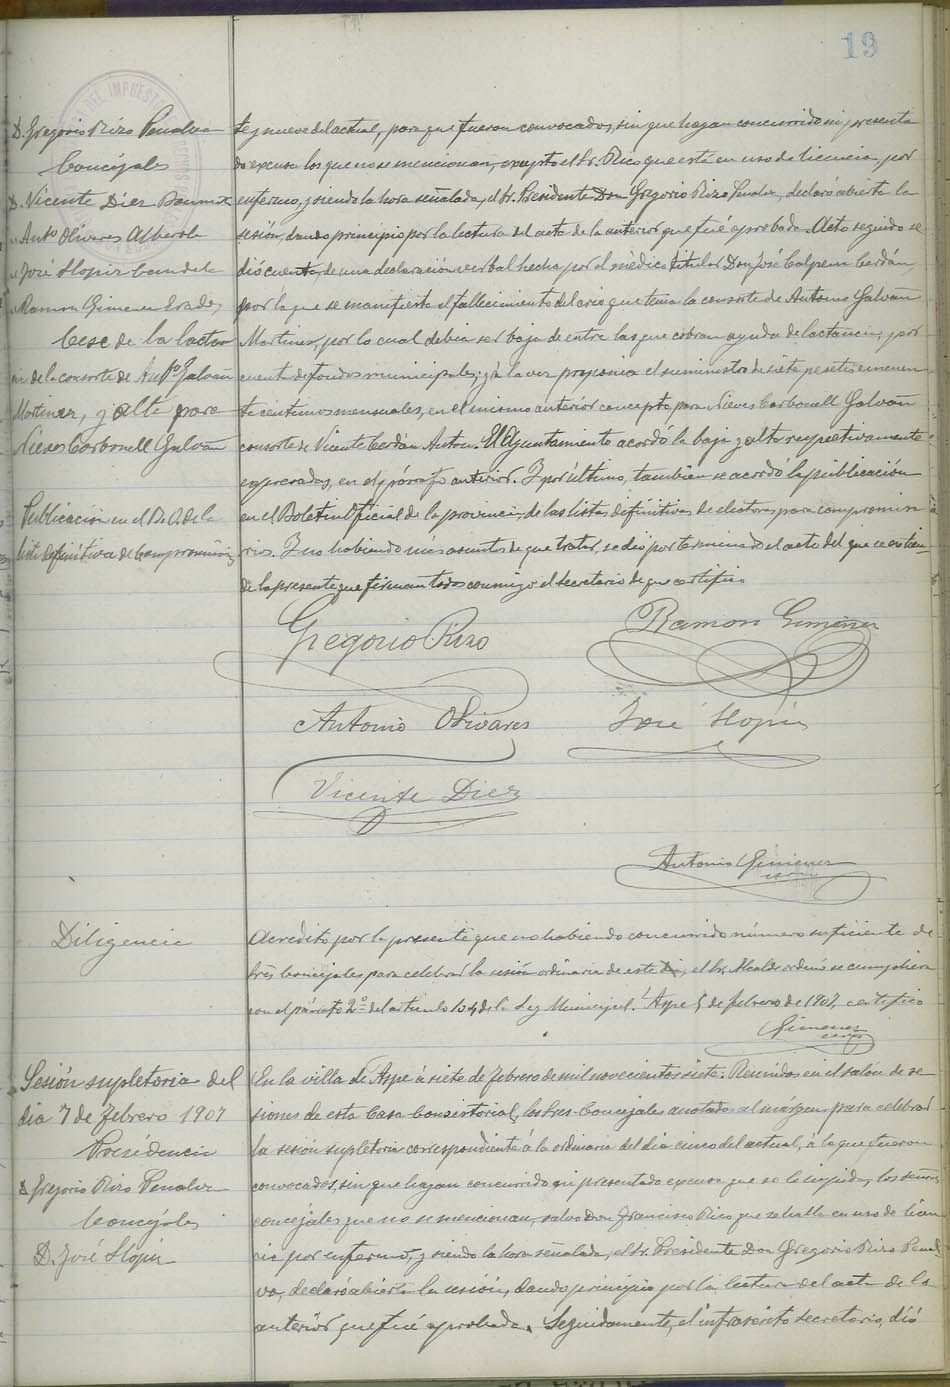 19
D. Gregorio Rizo Penalva
Concejales
D. Vicente Diez
" Antº Olivares Alberola
" José Hopir Candela
" Ramon Gimenez
Cese de la lactan
de la consorte de Antº Galvañ
Martinez, y alta para
Nieves Carbonell Galvañ
Publicacion en el B. O. de la
lista definitiva de Compromisarios
te y nueve del actual, para que fueron convocados, sin que hayan concurrido ni presenta
do excusa los que no se mencionan, excepto el Sr. Rico que está en uso de licencia, por
enfermo, y siendo la hora señalada, el Sr. Presidente Don Gregorio Rizo Penalva, declaró abierta la
sesión, dando principio por la lectura del acta de la anterior que fué aprobada. Acto seguido se
dió cuenta, de una declaración verbal hecha por el médico titular Don José Calpena Cerdán,
por la que se manifiesta el fallecimiento del crio que tenia la consorte de Antonio Galvañ
Martinez, por lo cual debia ser baja de entre las que cobran ayuda de lactancia, por
cuenta de fondos municipales; y á la vez proponia el suministro de siete pesetas cincuen
ta centimos mensuales, en el mismo anterior concepto, para Nieves Carbonell Galvañ
consorte de Vicente Cerdán Anton. El Ayuntamiento acordó la baja y alta respectivamente
expresadas, en el párrafo anterior. Y por último, tambien se acordó la publicación
en el Boletin Oficial de la provincia, de las listas definitivas de electores para compromisa
rios. Y no habiendo más asuntos de que tratar, se dió por terminado el acto del que se extien-
de la presente que firman todos conmigo el secretario de que certifico
Gregorio Rizo
Ramon Gimenez
Antonio Olivares
José Hopir
Vicente Diez
Antonio Gimenez
Diligencia
Acredito por la presente que no habiendo concurrido número suficiente de
tres Concejales para celebrar la sesión ordinaria de este dia, el Sr. Alcalde ordenó se cumpliera
con el párrafo 2º del articulo 104 de la Ley Municipal. Aspe 5 de febrero de 1907, certifico
Gimenez
Sesión supletoria del
dia 7 de febrero 1907
Presidencia
D. Gregorio Rizo Penalva
Concejales
D. José Hopir
En la villa de Aspe á siete de febrero de mil novecientos siete. Reunidos en el salón de se
siones de esta Casa Consistorial, los tres Concejales anotados al márgen para celebrar
la sesión supletoria correspondiente á la ordinaria del dia cinco del actual, á la que fueron
convocados, sin que hayan concurrido ni presentado excusa que se lo impida, los señores
concejales que no se mencionan, salvo Don Francisco Rico que se halla en uso de licen
cia por enfermo, y siendo la hora señalada, el Sr. Presidente Don Gregorio Rizo Penal
va, declaró abierta la sesión, dando principio por la lectura del acta de la
anterior que fué aprobada. Seguidamente, el infrascrito secretario, dió